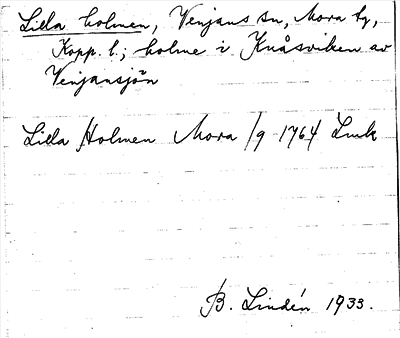 Lilla holmen, Venjans sn, Mora by,
Kopp. l.; holme i Knåsviken av
Venjansjön
Lilla Holmen Mora /9 1764 Lmk
B. Lindén 1933.